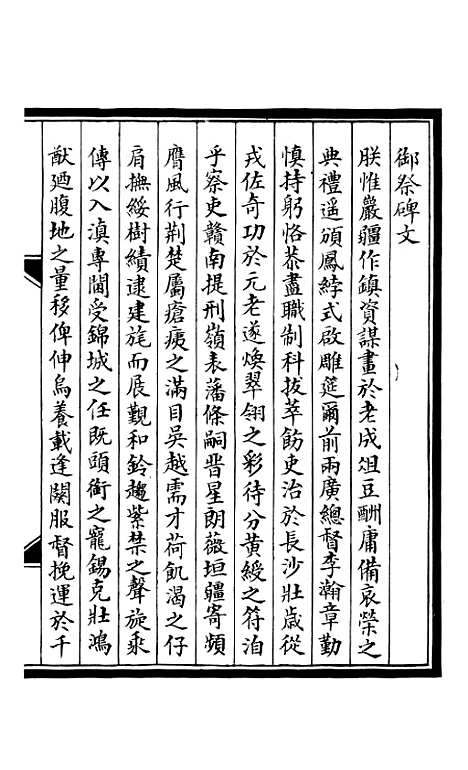 御祭碑文
朕惟嚴疆作鎮資謀畫於老成俎豆酬庸備哀榮之
典禮遥頒鳳綍式啟雕筵爾前兩廣總督李瀚章勤
慎持躬恪恭盡職制科拔萃飭吏治於長沙壯歲從
戎佐奇功於元老遂煥翠翎之彩待分黃綬之符洎
乎察吏贛南提刑嶺表藩條嗣晋星朗薇垣疆寄頻
膺風行荆楚屬瘡痍之滿目吳越需才荷飢渴之仔
肩撫綏樹績逮建旄而展覲和鈴趨紫禁之聲旋乘
傳以入滇專閫受錦城之任既頭銜之寵錫克壯鴻
猷廼腹地之量移俾伸烏養載逢闋服督挽運於千